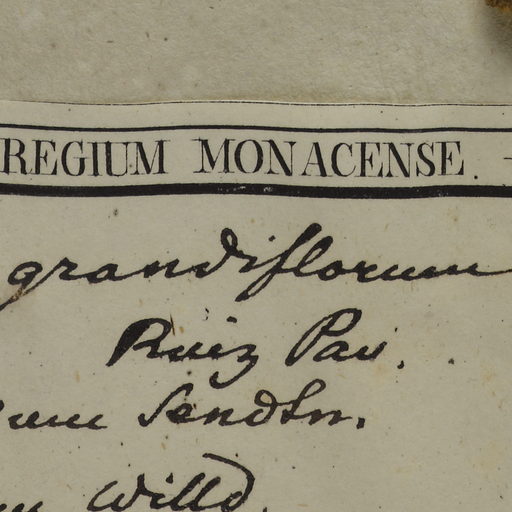 REGIUM MONACENSE. –
grandiflorum
Ruiz Pav.
um Sendtn.
Willd.